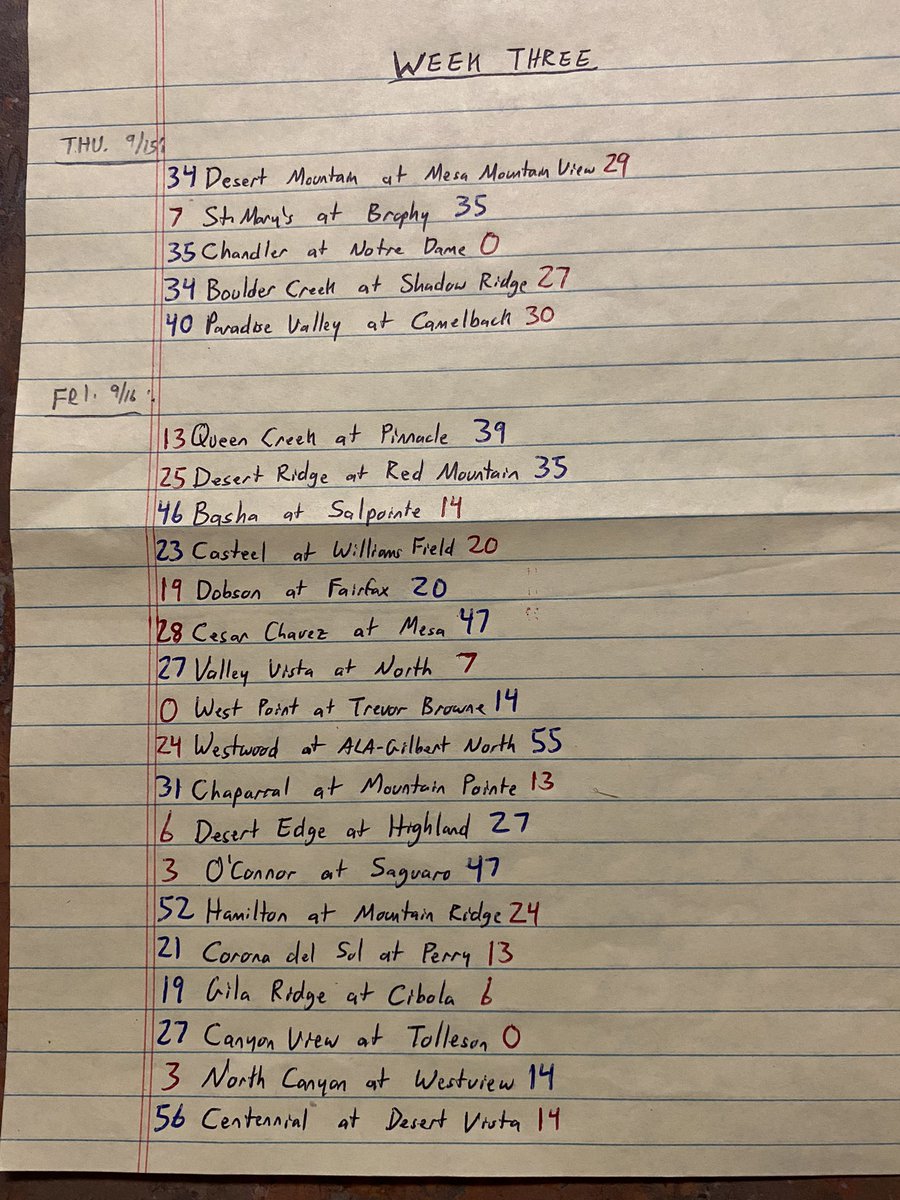 WEEK THREE
THU. 9/15:
34 Desert Mountain at Mesa Mountain View 29
7 St. Mary's at Brophy 35
35 Chandler at Notre Dame 0
34 Boulder Creek at Shadow Ridge 27
40 Paradise Valley at Camelback 30
FRI. 9/16:
13 Queen Creek at Pinnacle 39
25 Desert Ridge at Red Mountain 35
46 Basha at Salpointe 14
23 Casteel at Williams Field 20
19 Dobson at Fairfax 20
28 Cesar Chavez at Mesa 47
27 Valley Vista at North 7
0 West Point at Trevor Browne 14
24 Westwood at ALA-Gilbert North 55
31 Chaparral at Mountain Pointe 13
6 Desert Edge at Highland 27
3 O'Connor at Saguaro 47
52 Hamilton at Mountain Ridge 24
21 Corona del Sol at Perry 13
19 Gila Ridge at Cibola 6
27 Canyon View at Tolleson 0
3 North Canyon at Westview 14
56 Centennial at Desert Vista 14